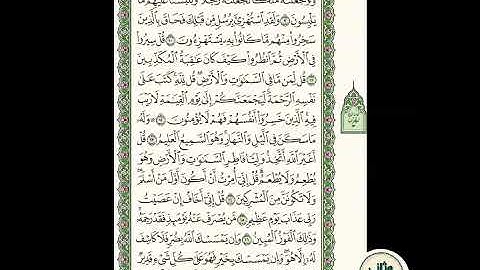 وَلَوْ جَعَلْنَٰهُ مَلَكًا لَّجَعَلْنَٰهُ رَجُلًا وَلَلَبَسْنَا عَلَيْهِم مَّا
يَلْبِسُونَ ۝٩ وَلَقَدِ ٱسْتُهْزِئَ بِرُسُلٍ مِّن قَبْلِكَ فَحَاقَ بِٱلَّذِينَ
سَخِرُوا۟ مِنْهُم مَّا كَانُوا۟ بِهِۦ يَسْتَهْزِءُونَ ۝١٠ قُلْ سِيرُوا۟
فِى ٱلْأَرْضِ ثُمَّ ٱنظُرُوا۟ كَيْفَ كَانَ عَٰقِبَةُ ٱلْمُكَذِّبِينَ
۝١١ قُل لِّمَن مَّا فِى ٱلسَّمَٰوَٰتِ وَٱلْأَرْضِ قُل لِّلَّهِ كَتَبَ عَلَىٰ
نَفْسِهِ ٱلرَّحْمَةَ لَيَجْمَعَنَّكُمْ إِلَىٰ يَوْمِ ٱلْقِيَٰمَةِ لَا رَيْبَ
فِيهِ ٱلَّذِينَ خَسِرُوٓا۟ أَنفُسَهُمْ فَهُمْ لَا يُؤْمِنُونَ ۝١٢ وَلَهُۥ
مَا سَكَنَ فِى ٱلَّيْلِ وَٱلنَّهَارِ وَهُوَ ٱلسَّمِيعُ ٱلْعَلِيمُ ۝١٣ قُلْ
أَغَيْرَ ٱللَّهِ أَتَّخِذُ وَلِيًّا فَاطِرِ ٱلسَّمَٰوَٰتِ وَٱلْأَرْضِ وَهُوَ
يُطْعِمُ وَلَا يُطْعَمُ قُلْ إِنِّىٓ أُمِرْتُ أَنْ أَكُونَ أَوَّلَ مَنْ أَسْلَمَ
وَلَا تَكُونَنَّ مِنَ ٱلْمُشْرِكِينَ ۝١٤ قُلْ إِنِّىٓ أَخَافُ إِنْ عَصَيْتُ
رَبِّى عَذَابَ يَوْمٍ عَظِيمٍ ۝١٥ مَّن يُصْرَفْ عَنْهُ يَوْمَئِذٍ فَقَدْ رَحِمَهُۥ
وَذَٰلِكَ ٱلْفَوْزُ ٱلْمُبِينُ ۝١٦ وَإِن يَمْسَسْكَ ٱللَّهُ بِضُرٍّ فَلَا كَاشِفَ
لَهُۥٓ إِلَّا هُوَ وَإِن يَمْسَسْكَ بِخَيْرٍ فَهُوَ عَلَىٰ كُلِّ شَىْءٍ قَدِيرٌ